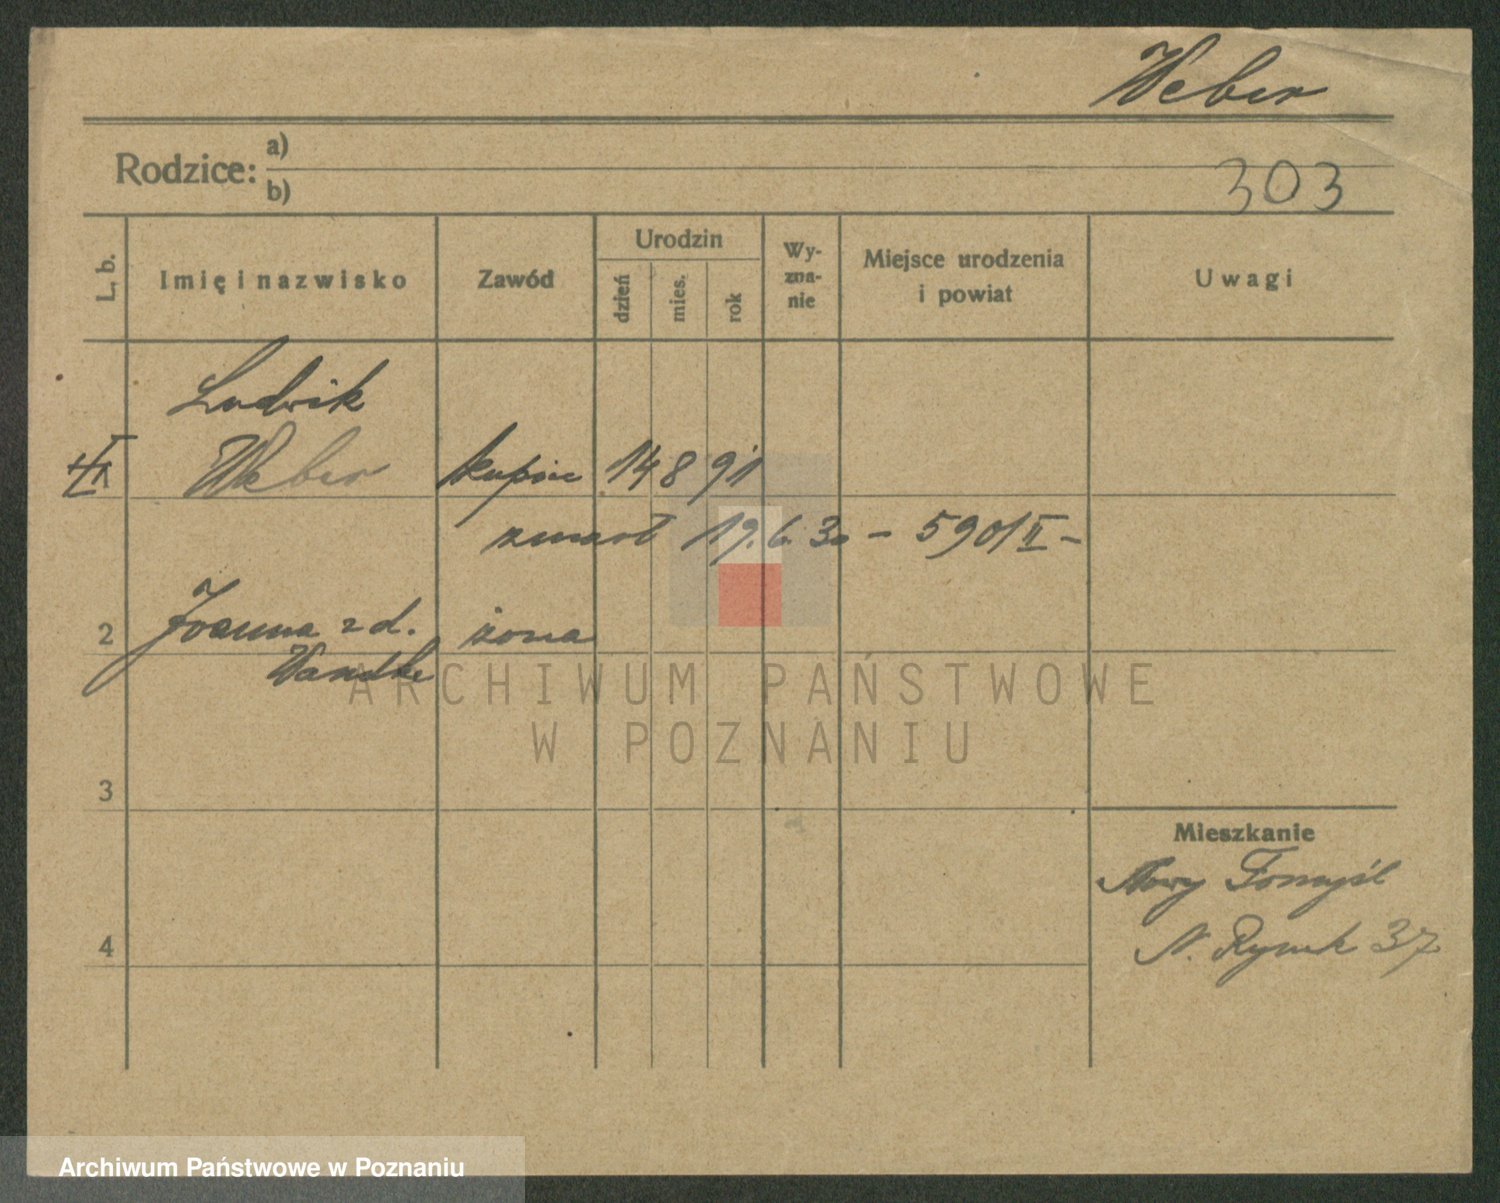 Weber
Rodzice: a)
b)
303
L. b.
Imię i nazwisko
Zawód
Urodzin
dzień
mies.
rok
Wy-
zna-
nie
Miejsce urodzenia
i powiat
Uwagi
Ludwik
Weber kupiec 14 8 91
zmarł 19. 6. 30 – 590/II –
2 Joanna z d. żona
Wandke
ARCHIWUM PAŃSTWOWE
W POZNANIU
3
Mieszkanie
Nowy Tomyśl
4
N. Rynek 37
Archiwum Państwowe w Poznaniu